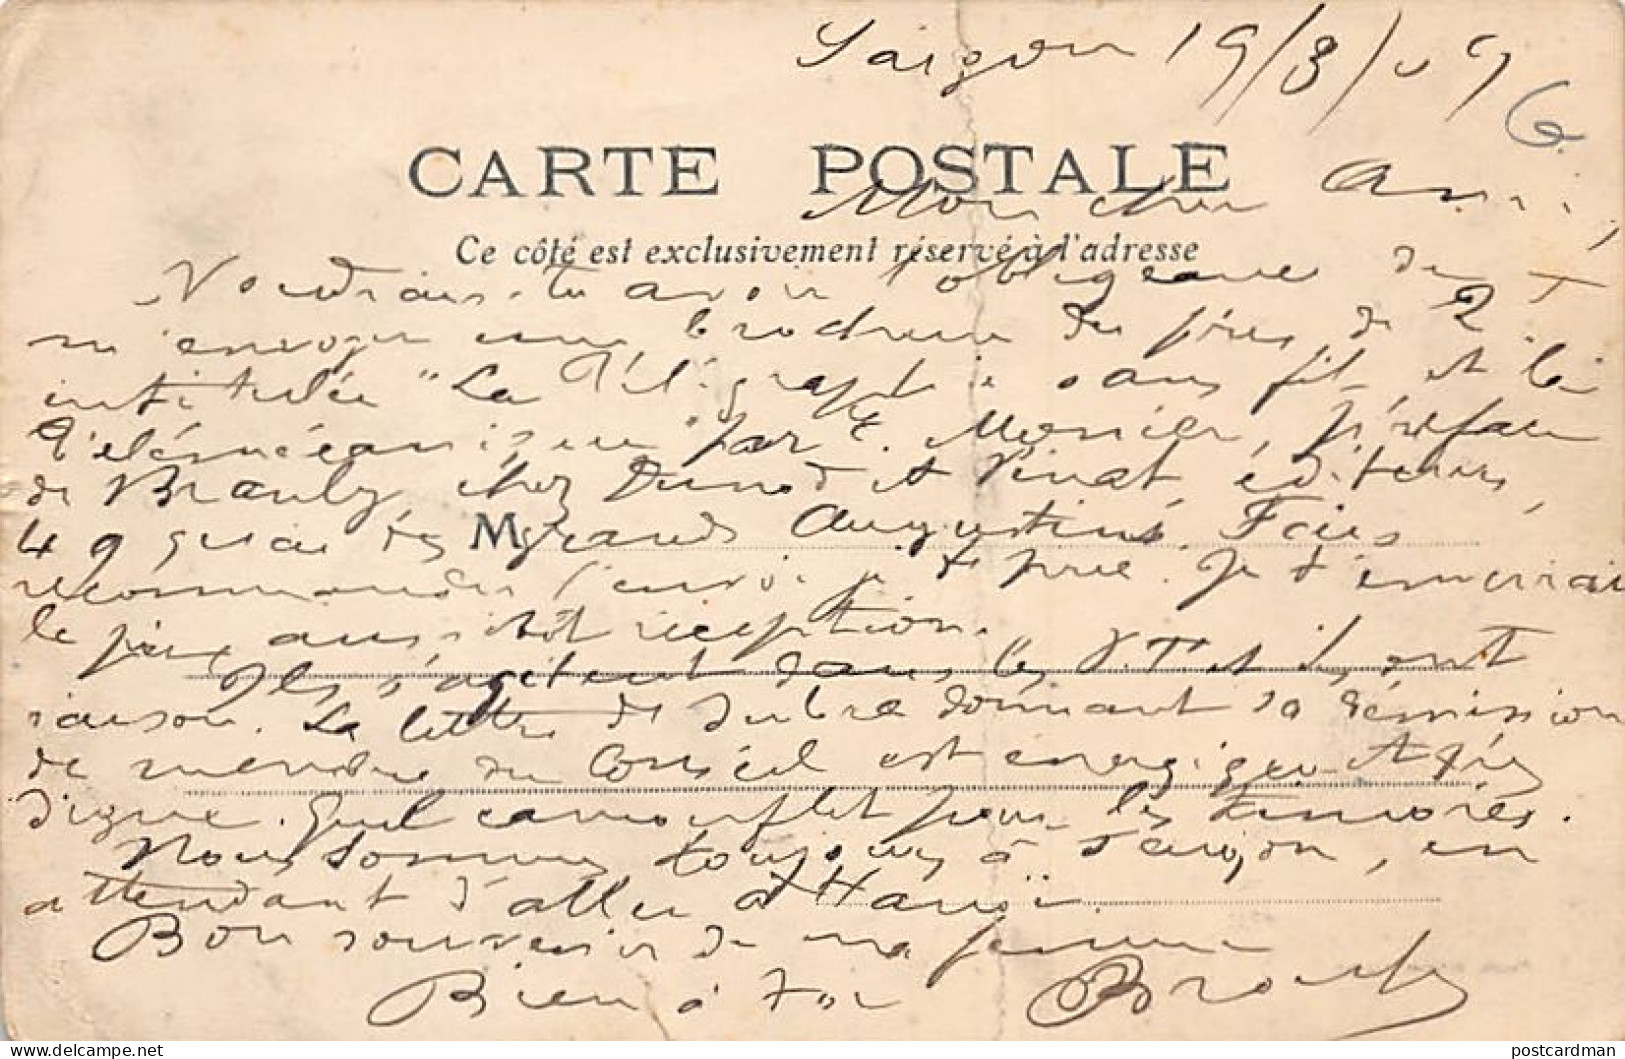 Saigon 19/3/09
6
CARTE POSTALE
Mon cher Ami,
Ce côté est exclusivement réservé à l'adresse
Voudrais-tu avoir l'obligeance de
m'envoyer une brochure du prix de 2
intitulée "La Télégraphie sans fil et la
Télémécanique" par E. Monier, préface
de Branly chez Dunod et Pinat, éditeurs,
49 quai des grands Augustins. Fais
M
recommander l'envoi je te prie. Je t'enverrai
le prix aussitôt réception.
Ils s'agitent dans les P.T. et ils ont
raison. La lettre de donnant sa démission
de membre du Conseil est énergique et très
digne. Quel camouflet pour les timorés.
Nous sommes toujours à Saigon, en
attendant d'aller à Hanoï.
Bon souvenir de ma femme
Bien à toi
postcardman